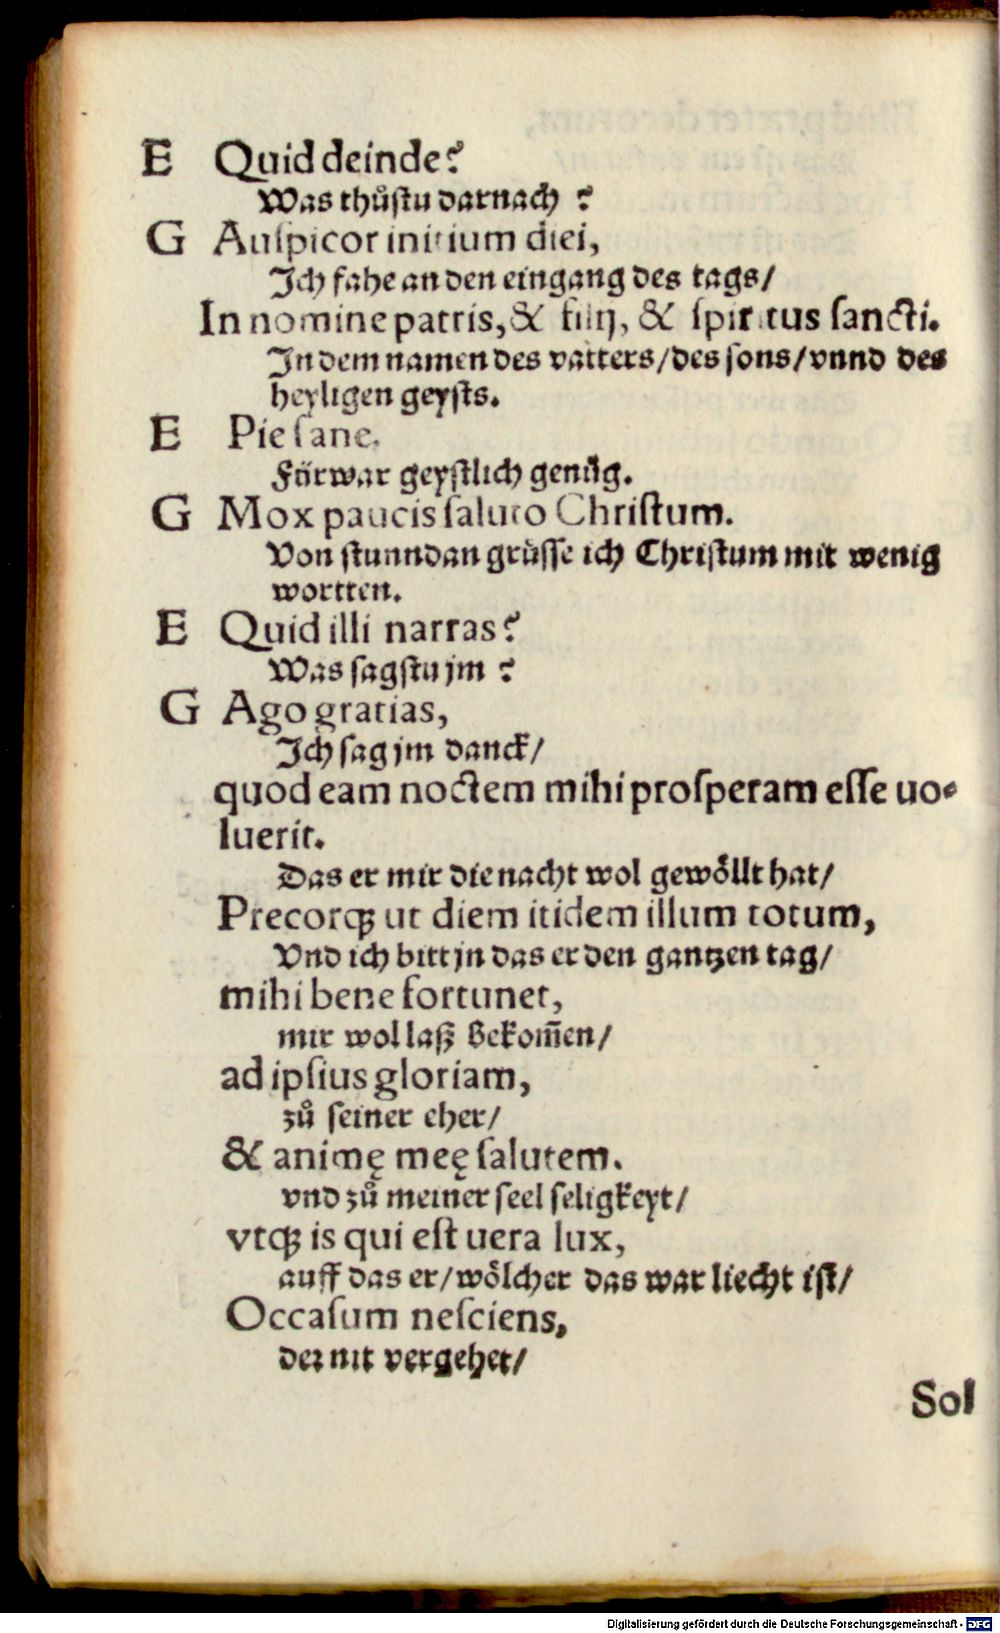 E Quid deinde?
Was thůſtu darnach ?
G Auſpicor initium diei,
Ich fahe an den eingang des tags/
In nomine patris, & filij, & ſpiritus ſancti.
In dem namen des vatters/des ſons/vnnd des
heyligen geyſts.
E Pie ſane.
Fürwar geyſtlich genůg.
G Mox paucis ſaluto Chriſtum.
Von ſtunndan grüſſe ich Chriſtum mit wenig
wortten.
E Quid illi narras?
Was ſagſtu jm ?
G Ago gratias,
Ich ſag jm danck/
quod eam noctem mihi proſperam eſſe uo⸗
luerit.
Das er mir die nacht wol gewöllt hat/
Precorq́ꝫ ut diem itidem illum totum,
Vnd ich bitt jn das er den gantzen tag/
mihi bene fortunet,
mir wol laß bekom̃en/
ad ipſius gloriam,
zů ſeiner eher/
& animę meę ſalutem.
vnd zů meiner ſeel ſeligkeyt/
vtq́ꝫ is qui eſt uera lux,
auff das er/wölcher das war liecht iſt/
Occaſum neſciens,
der nit vergehet/
Sol
Digitalisierung gefördert durch die Deutsche Forschungsgemeinschaft - DFG